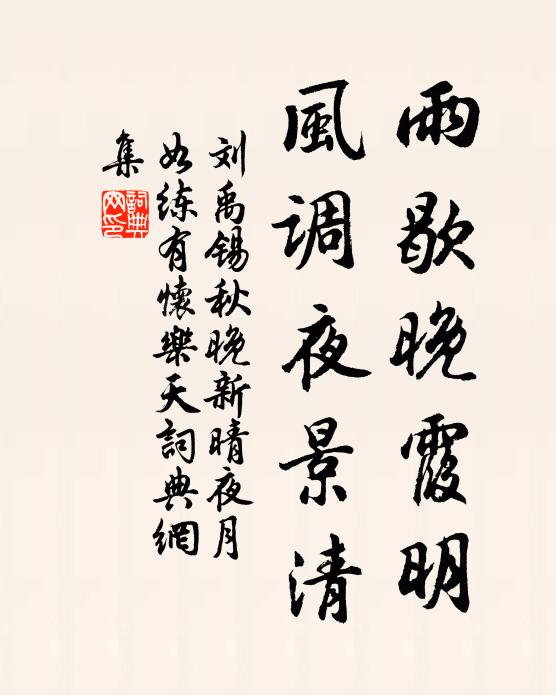 雨歇晚霞明
風调夜景清
刘禹锡秋晚新晴夜月
如练有懷樂天詞典網
集
詞典网印